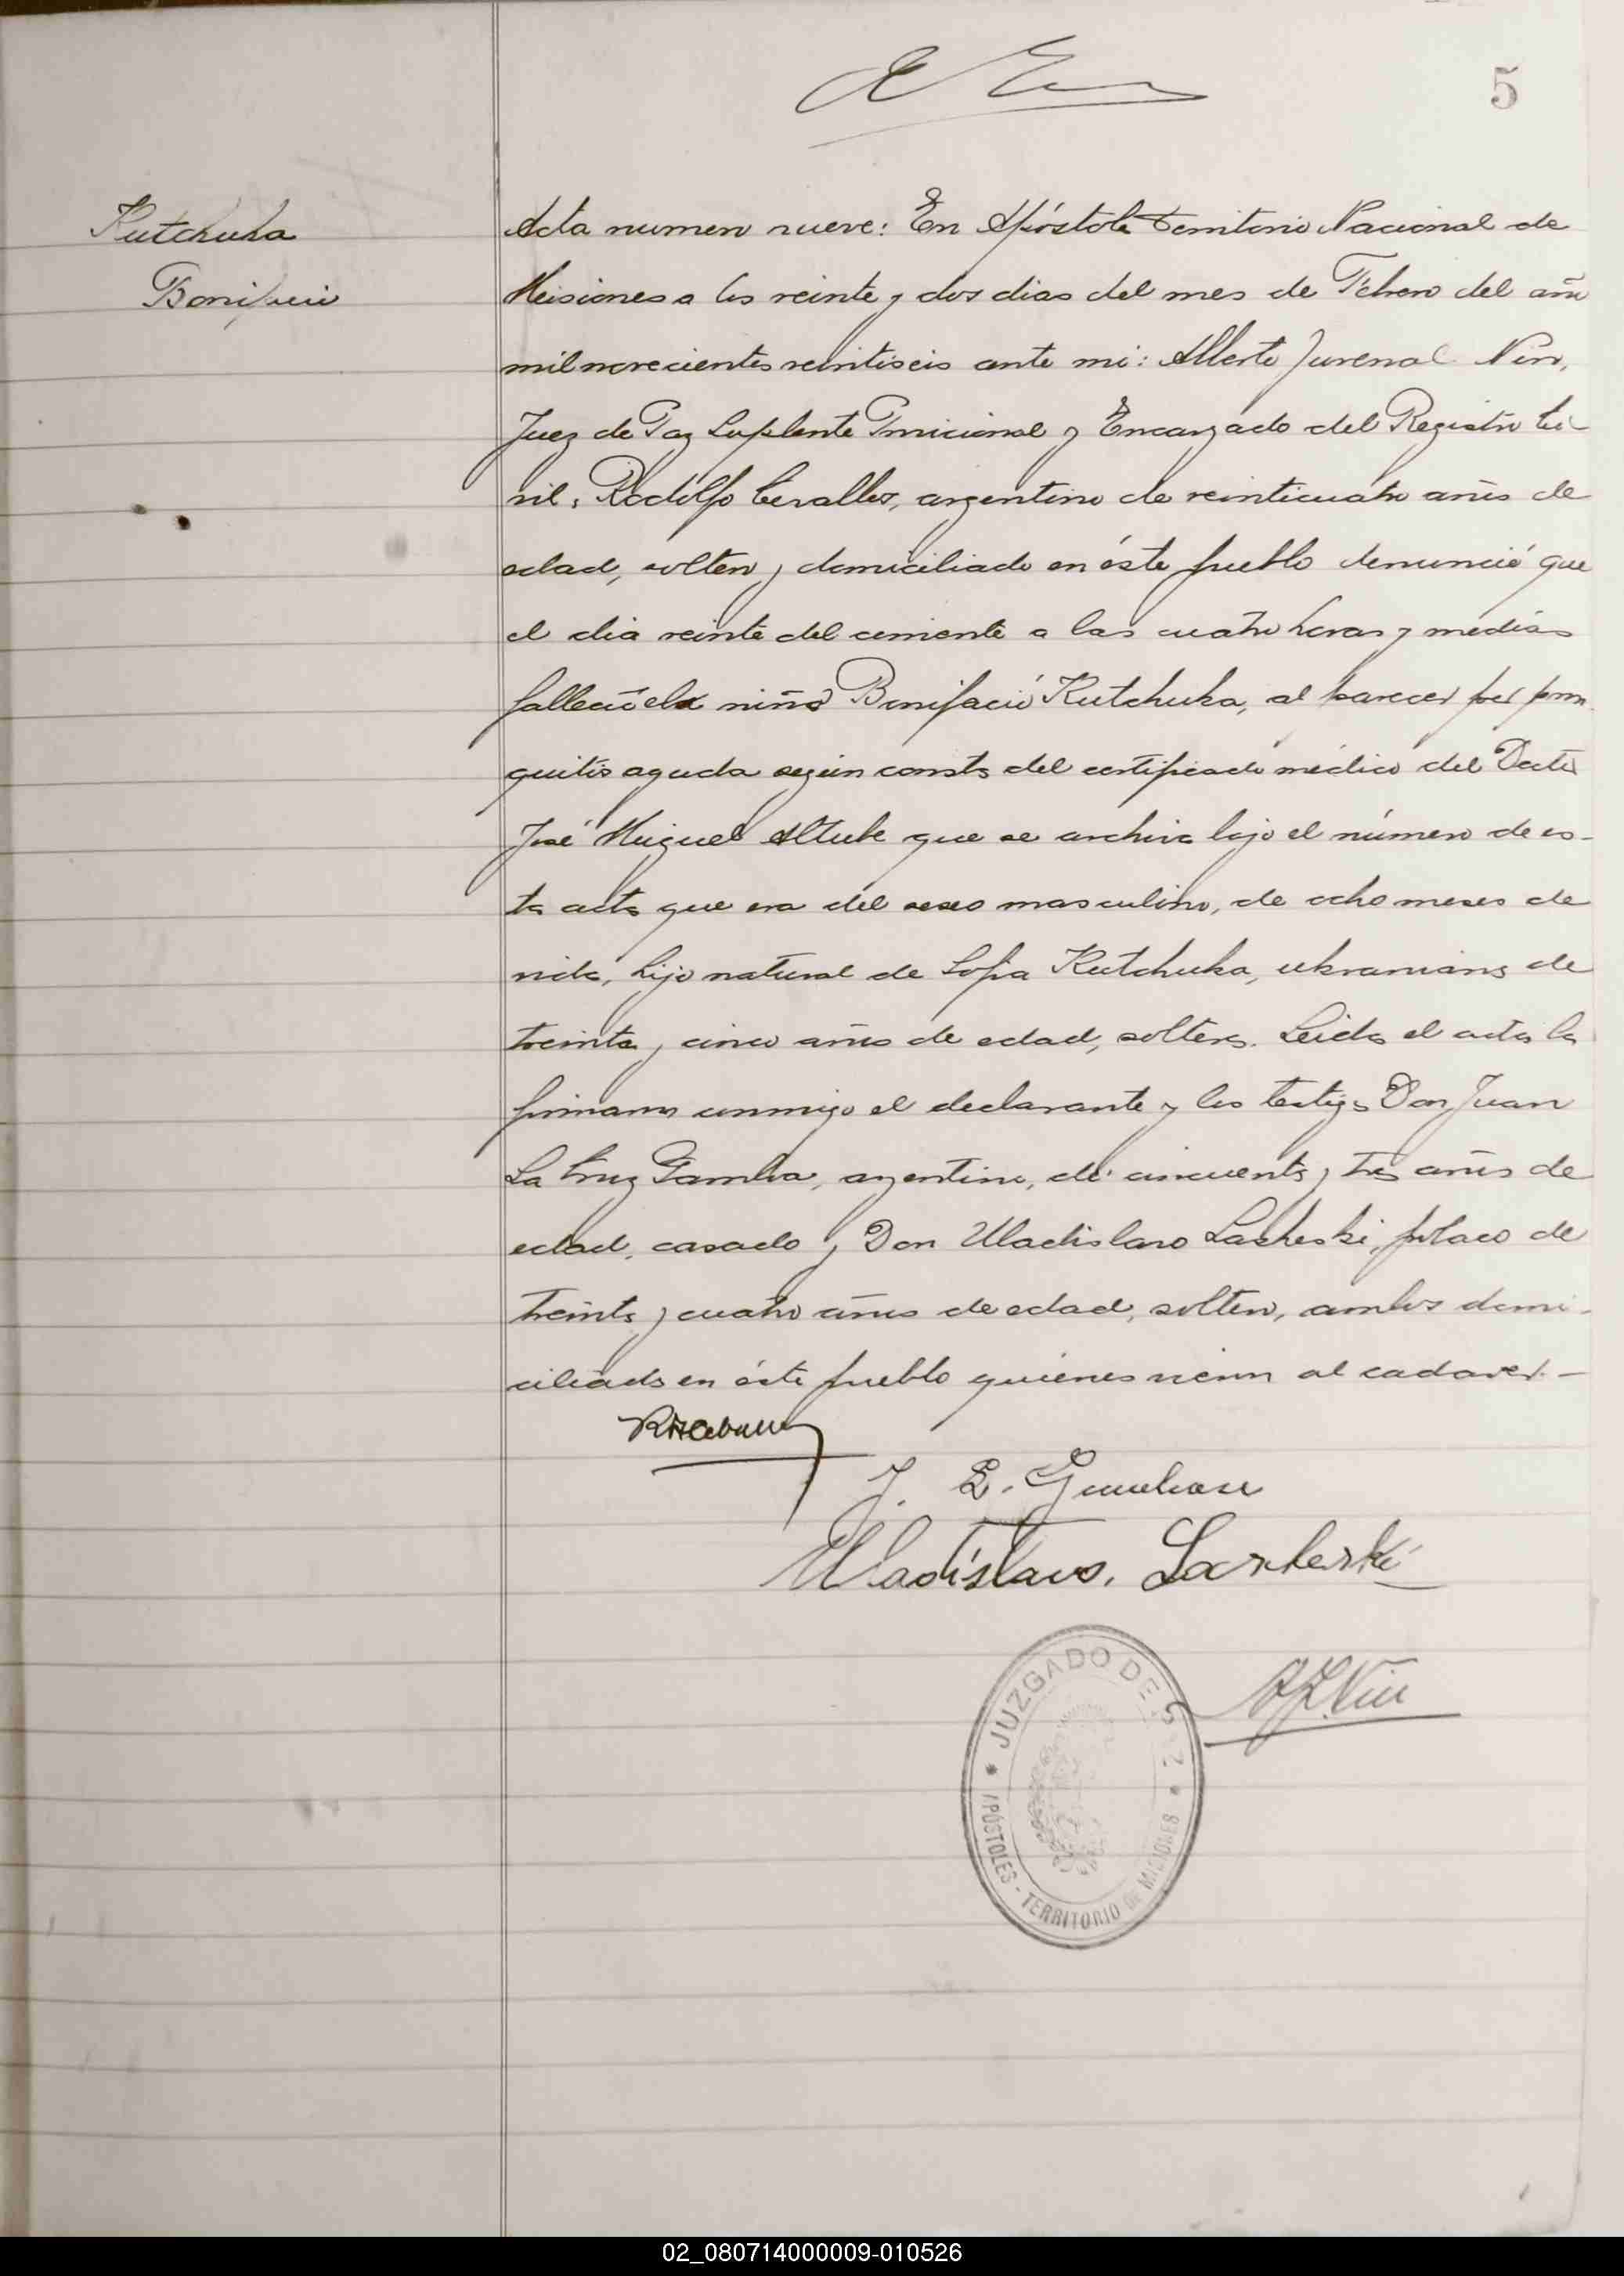 5
Kutchuka
Bonifacio
Acta numero nueve: En Apóstoles Territorio Nacional de
Misiones a los veinte y dos dias del mes de Febrero del año
mil novecientos veintiseis ante mi: Alberto Juvenal Nin,
Juez de Paz Suplente Provicional y Encargado del Registro Ci-
vil, Rodolfo Cevallos, argentino de veinticuatro años de
edad, soltero y domiciliado en éste pueblo denunció que
el dia veinte del corriente a las cuatro horas y media
falleció el niño Bonifacio Kutchuka, al parecer por bron
quitis aguda según consta del certificado médico del Doctor
José Miguel Altube que se archiva bajo el número de es-
ta acta que era del sexo masculino, de ocho meses de
vida, hijo natural de Sofia Kutchuka, ukraniana de
treinta y cinco años de edad, soltera. Leida el acta la
firmaron conmigo el declarante y los testigos Don Juan
La Cruz Gamboa, argentino, de cincuenta y tres años de
edad, casado y Don Uladislavo Lasheski, polaco de
treinta y cuatro años de edad, soltero, ambos domi-
ciliados en éste pueblo quienes vieron al cadaver. -
J. L.
Uladislavo.
A J Nin
JUZGADO DE PAZ
APÓSTOLES - TERRITORIO DE MISIONES
02_080714000009-010526